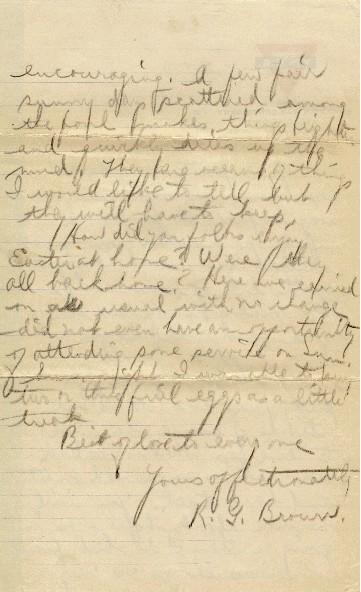 encouraging. A few fair
sunny days scattered among
the pool
and quickly dries up the
mud. They are of things
I would like to tell but
they will have to keep.
How did you folks enjoy
Easter at home? Were they
all back home? Here we
on as usual with no change
did not even have an opportunity
of attending some service on
I was able to buy
two or three eggs as a little
treat.
Best of love to everyone
Yours affectionately
R. G. Brown.